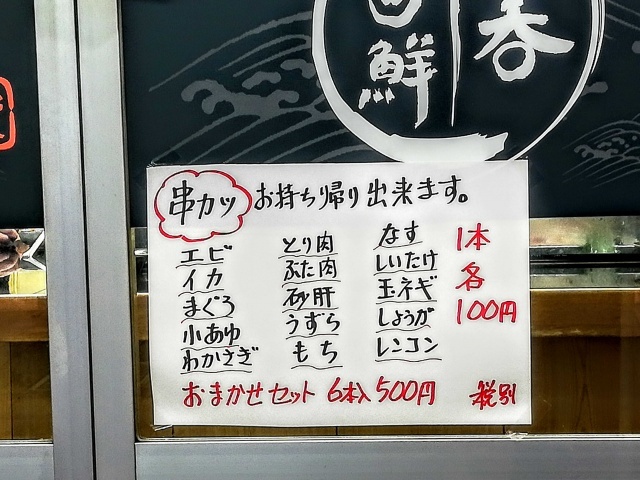 鮮
呑
串カツ お持ち帰り出来ます。
エビ
イカ
まぐろ
小あゆ
わかさぎ
とり肉
ぶた肉
砂肝
うずら
もち
なす
しいたけ
玉ネギ
しょうが
レンコン
1本
各
100円
おまかせセット 6本入 500円 税別